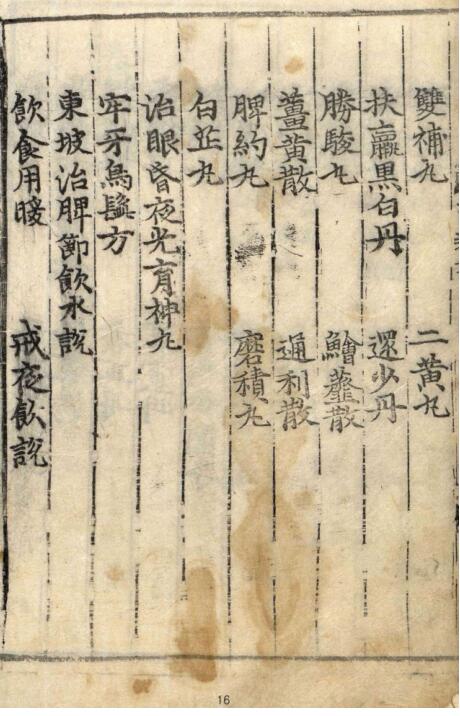 雙補丸 二黄丸
扶羸黑白丹 還少丹
勝駿丸 鱠虀散
薑黄散 通利散
脾約丸 磨積丸
白芷丸
治眼昏夜光育神丸
牢牙烏鬚方
東坡治脾節飲水說
飲食用暖 戒夜飲說
16